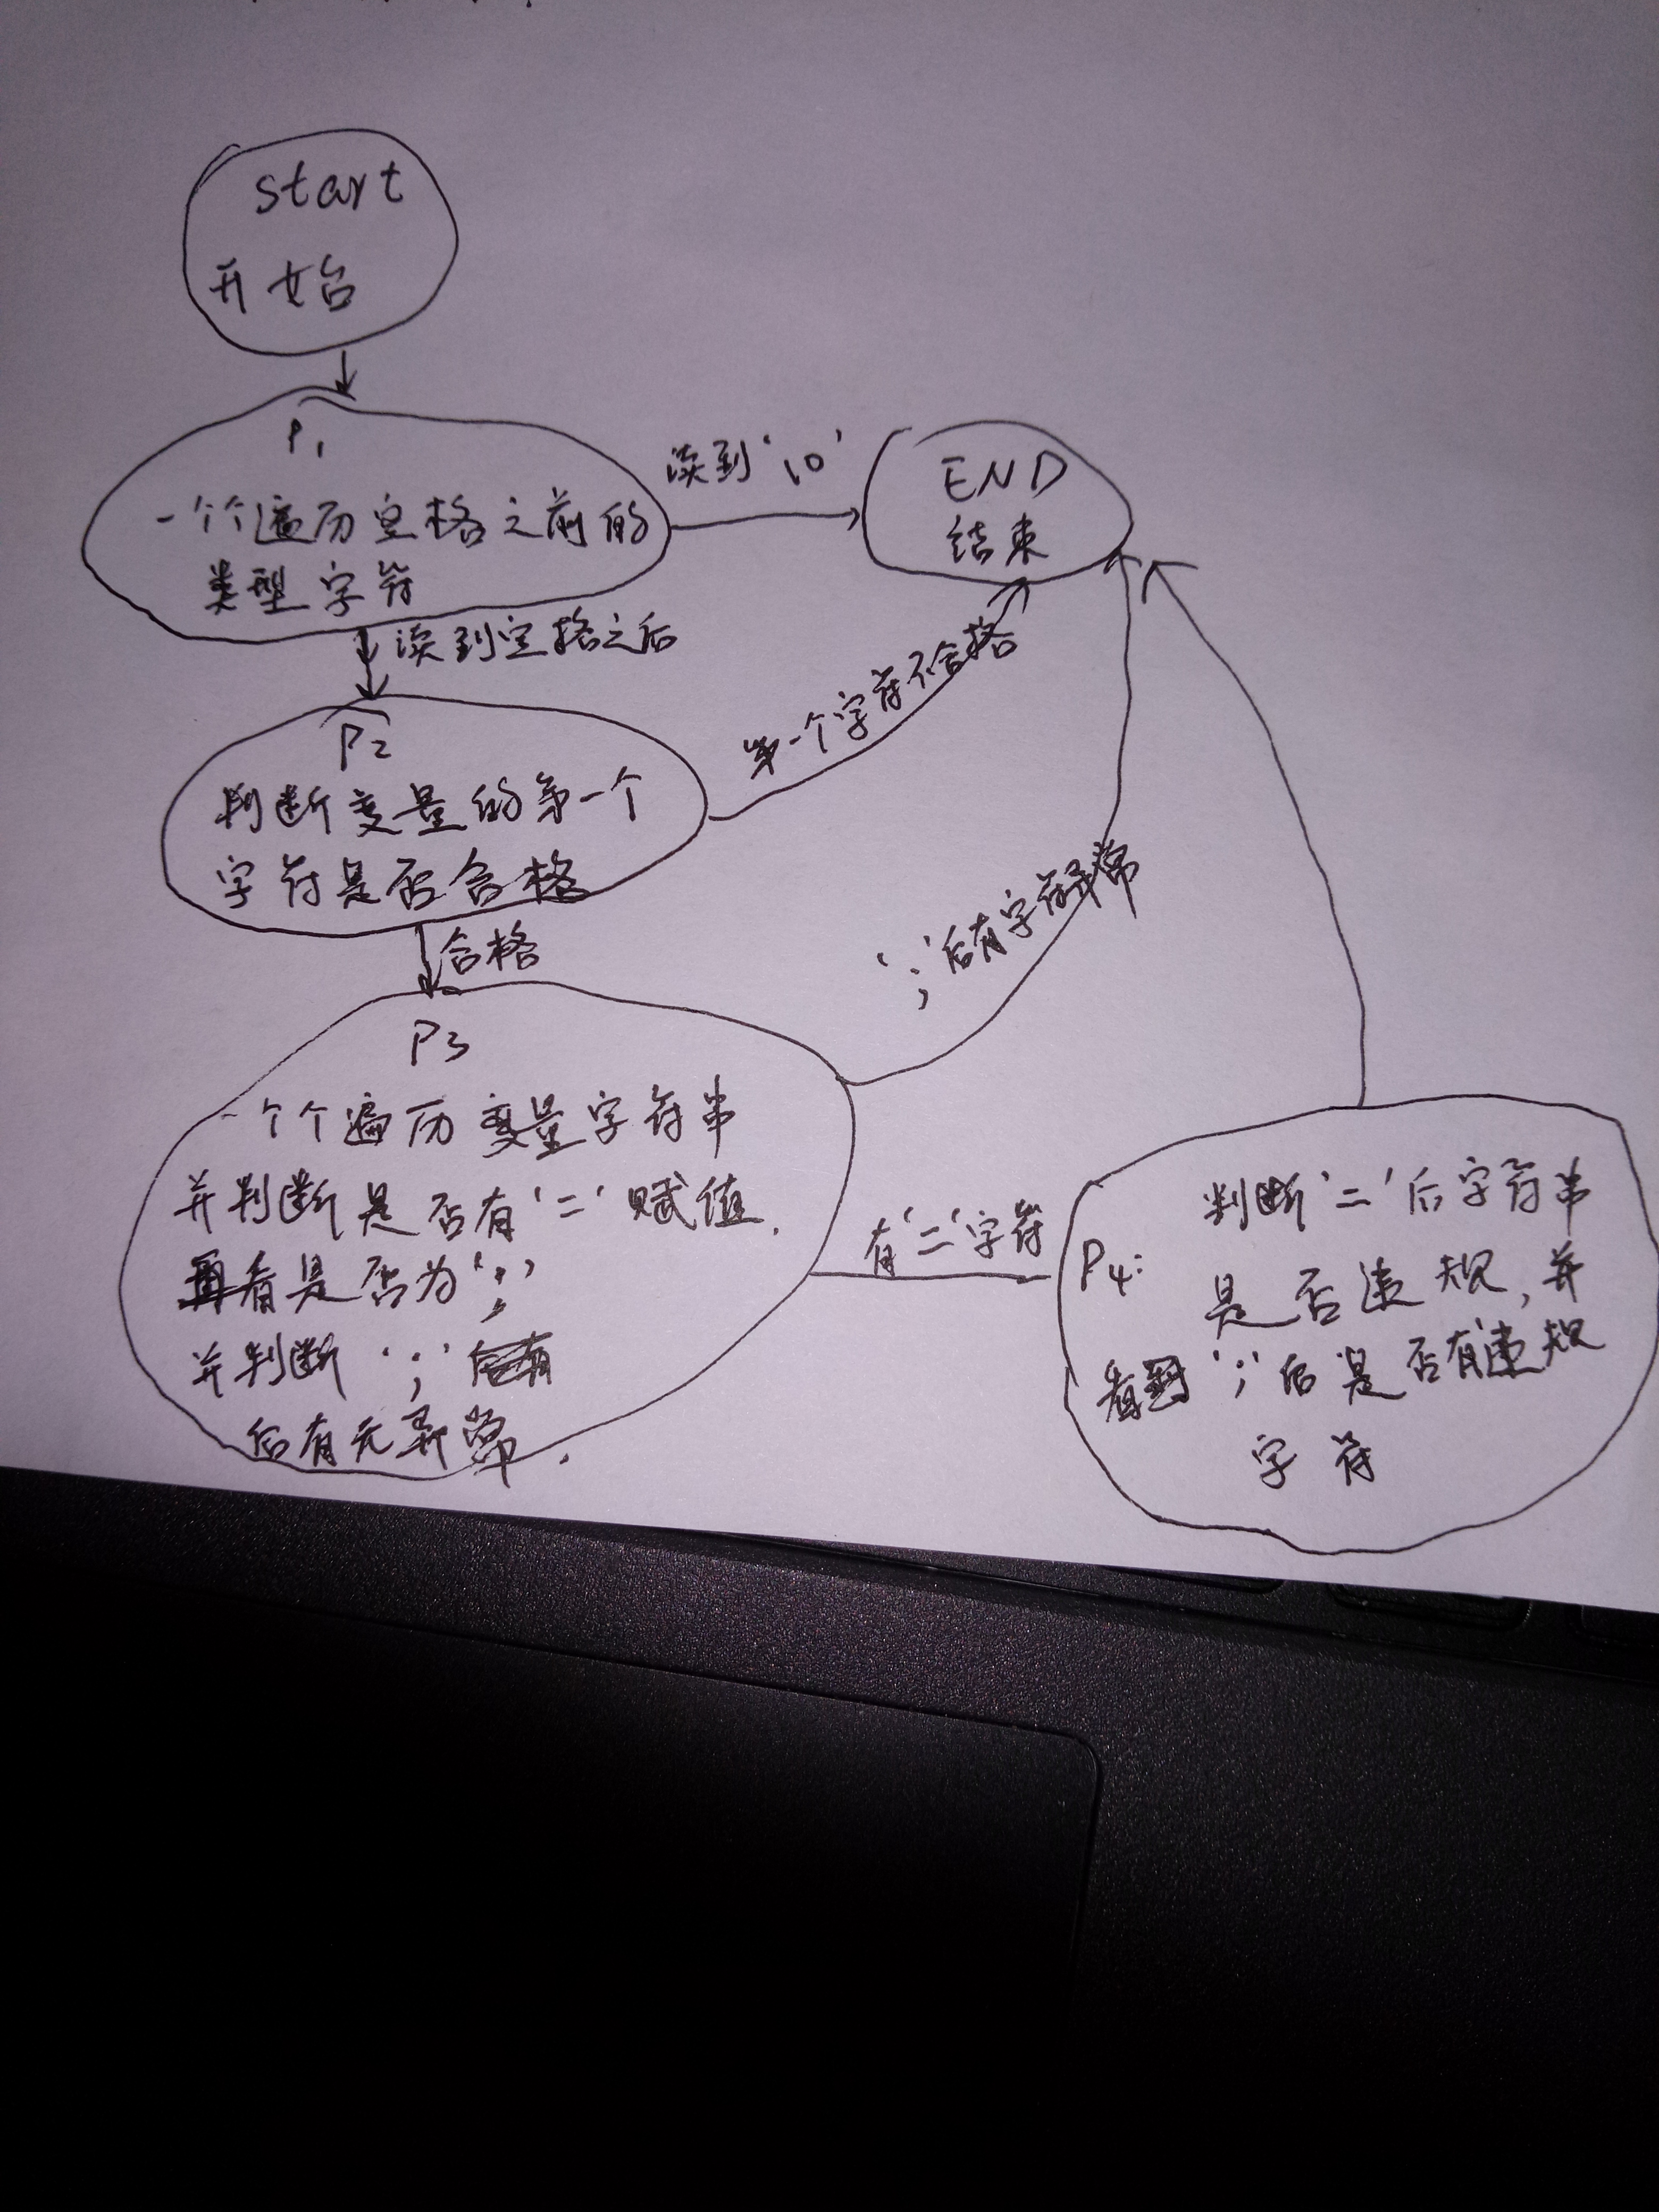 start
开始
P1
一个个遍历空格之前的
类型字符
读到'\0'
END
结束
读到空格之后
P2
判断变量的第一个
字符是否合格
第一个字符不合格
合格
P3
一个个遍历变量字符串
并判断是否有'='赋值.
再看是否为';'
并判断';'
后有无异常.
';'后有字符异常
有'='字符
P4:
判断'='后字符串
是否违规,并
看';'后是否有违规
字符